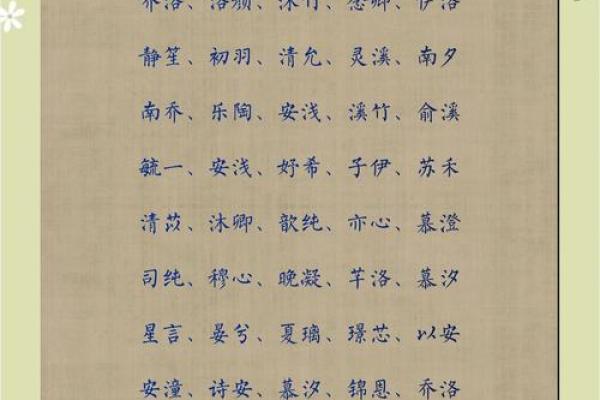 乔洛、洛颜、沐竹、慈卿、伊洛
静笙、初羽、清允、灵溪、南夕
南乔、乐陶、安浅、溪竹、俞溪
毓一、安浅、妤希、子伊、苏禾
清苡、沐卿、歆纯、亦心、慕澄
司纯、穆心、晚凝、芊洛、慕汐
星言、晏兮、夏璃、璟芯、以安
安潼、诗安、慕汐、锦恩、乔洛